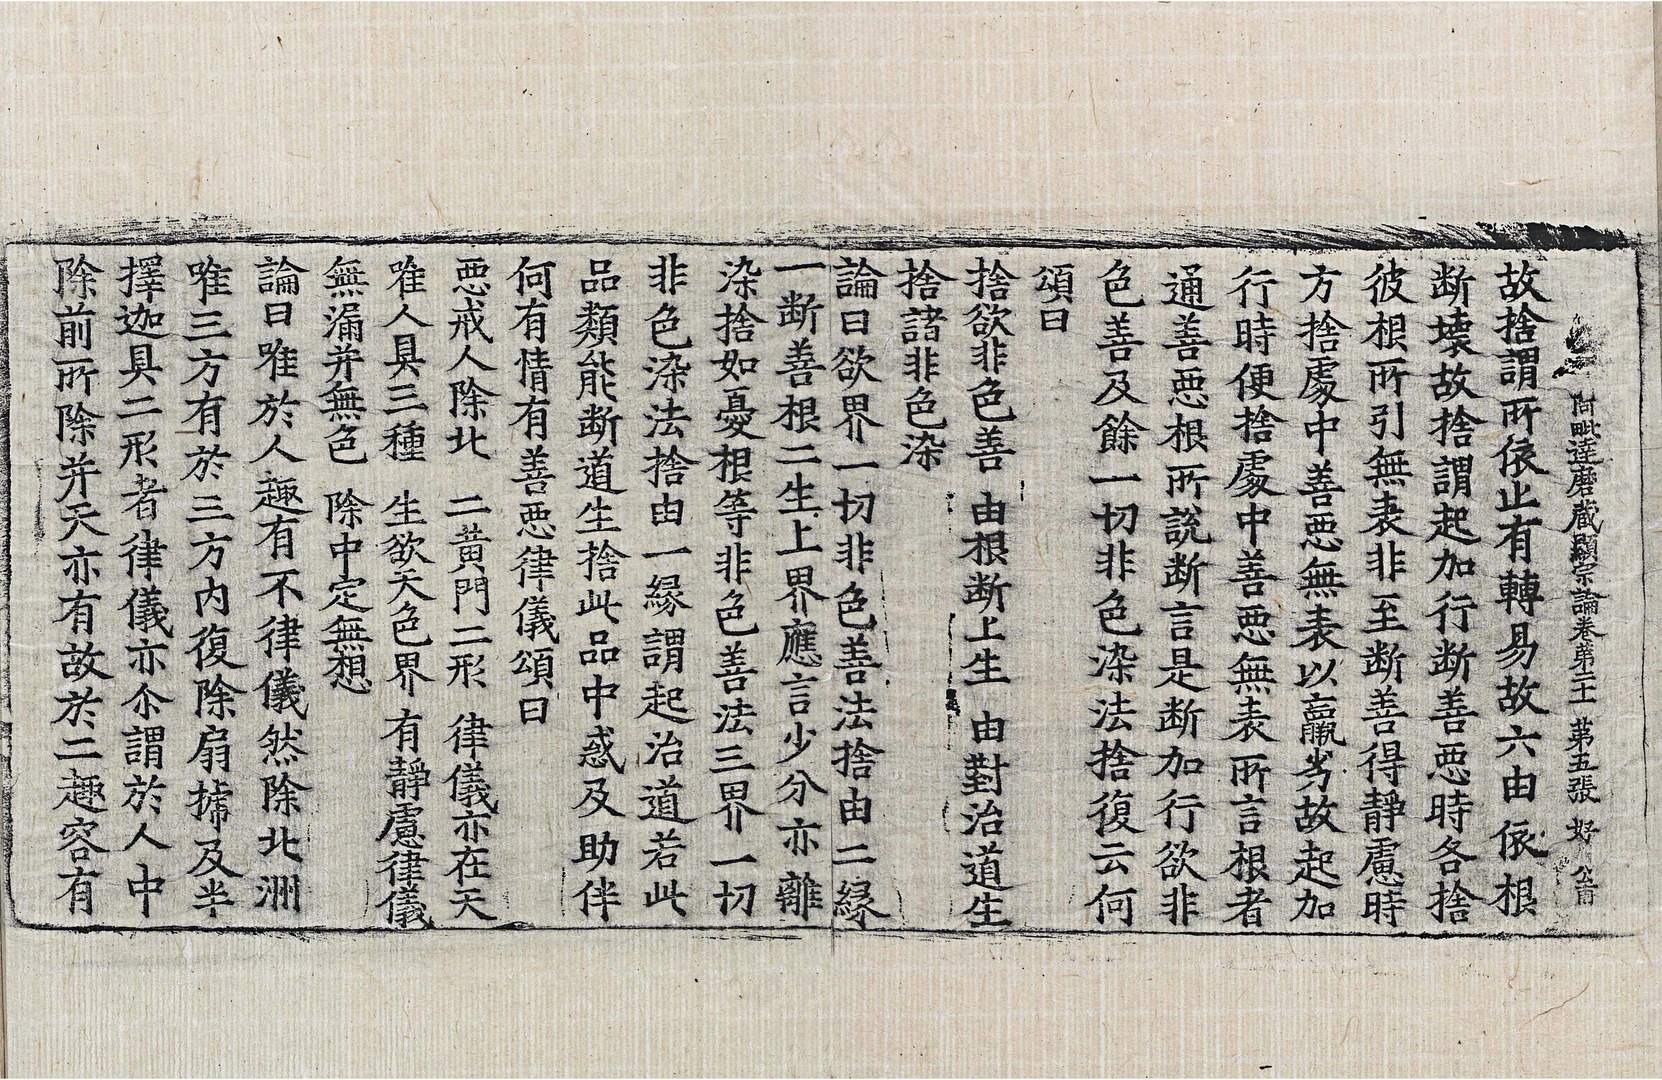 阿毗達磨藏顯宗論卷第二十 第五張 好
故捨謂所依止有轉易故六由依根
断壞故捨謂起加行断善惡時各捨
彼根所引無表非至断善得靜慮時
方捨處中善惡無表以羸劣故起加
行時便捨處中善惡無表所言根者
通善惡根所說断言是断加行欲非
色善及餘一切非色染法捨復云何
頌曰
捨欲非色善 由根断上生 由對治道生
捨諸非色染
論曰欲界一切非色善法捨由二緣
一断善根二生上界應言少分亦離
染捨如憂根等非色善法三界一切
非色染法捨由一緣謂起治道若此
品類能断道生捨此品中惑及助伴
何有情有善惡律儀頌曰
惡戒人除北 二黃門二形 律儀亦在天
唯人具三種 生欲天色界 有靜慮律儀
無漏并無色 除中定無想
論曰唯於人趣有不律儀然除北洲
唯三方有於三方内復除扇搋及半
擇迦具二形者律儀亦尒謂於人中
除前所除并天亦有故於二趣容有